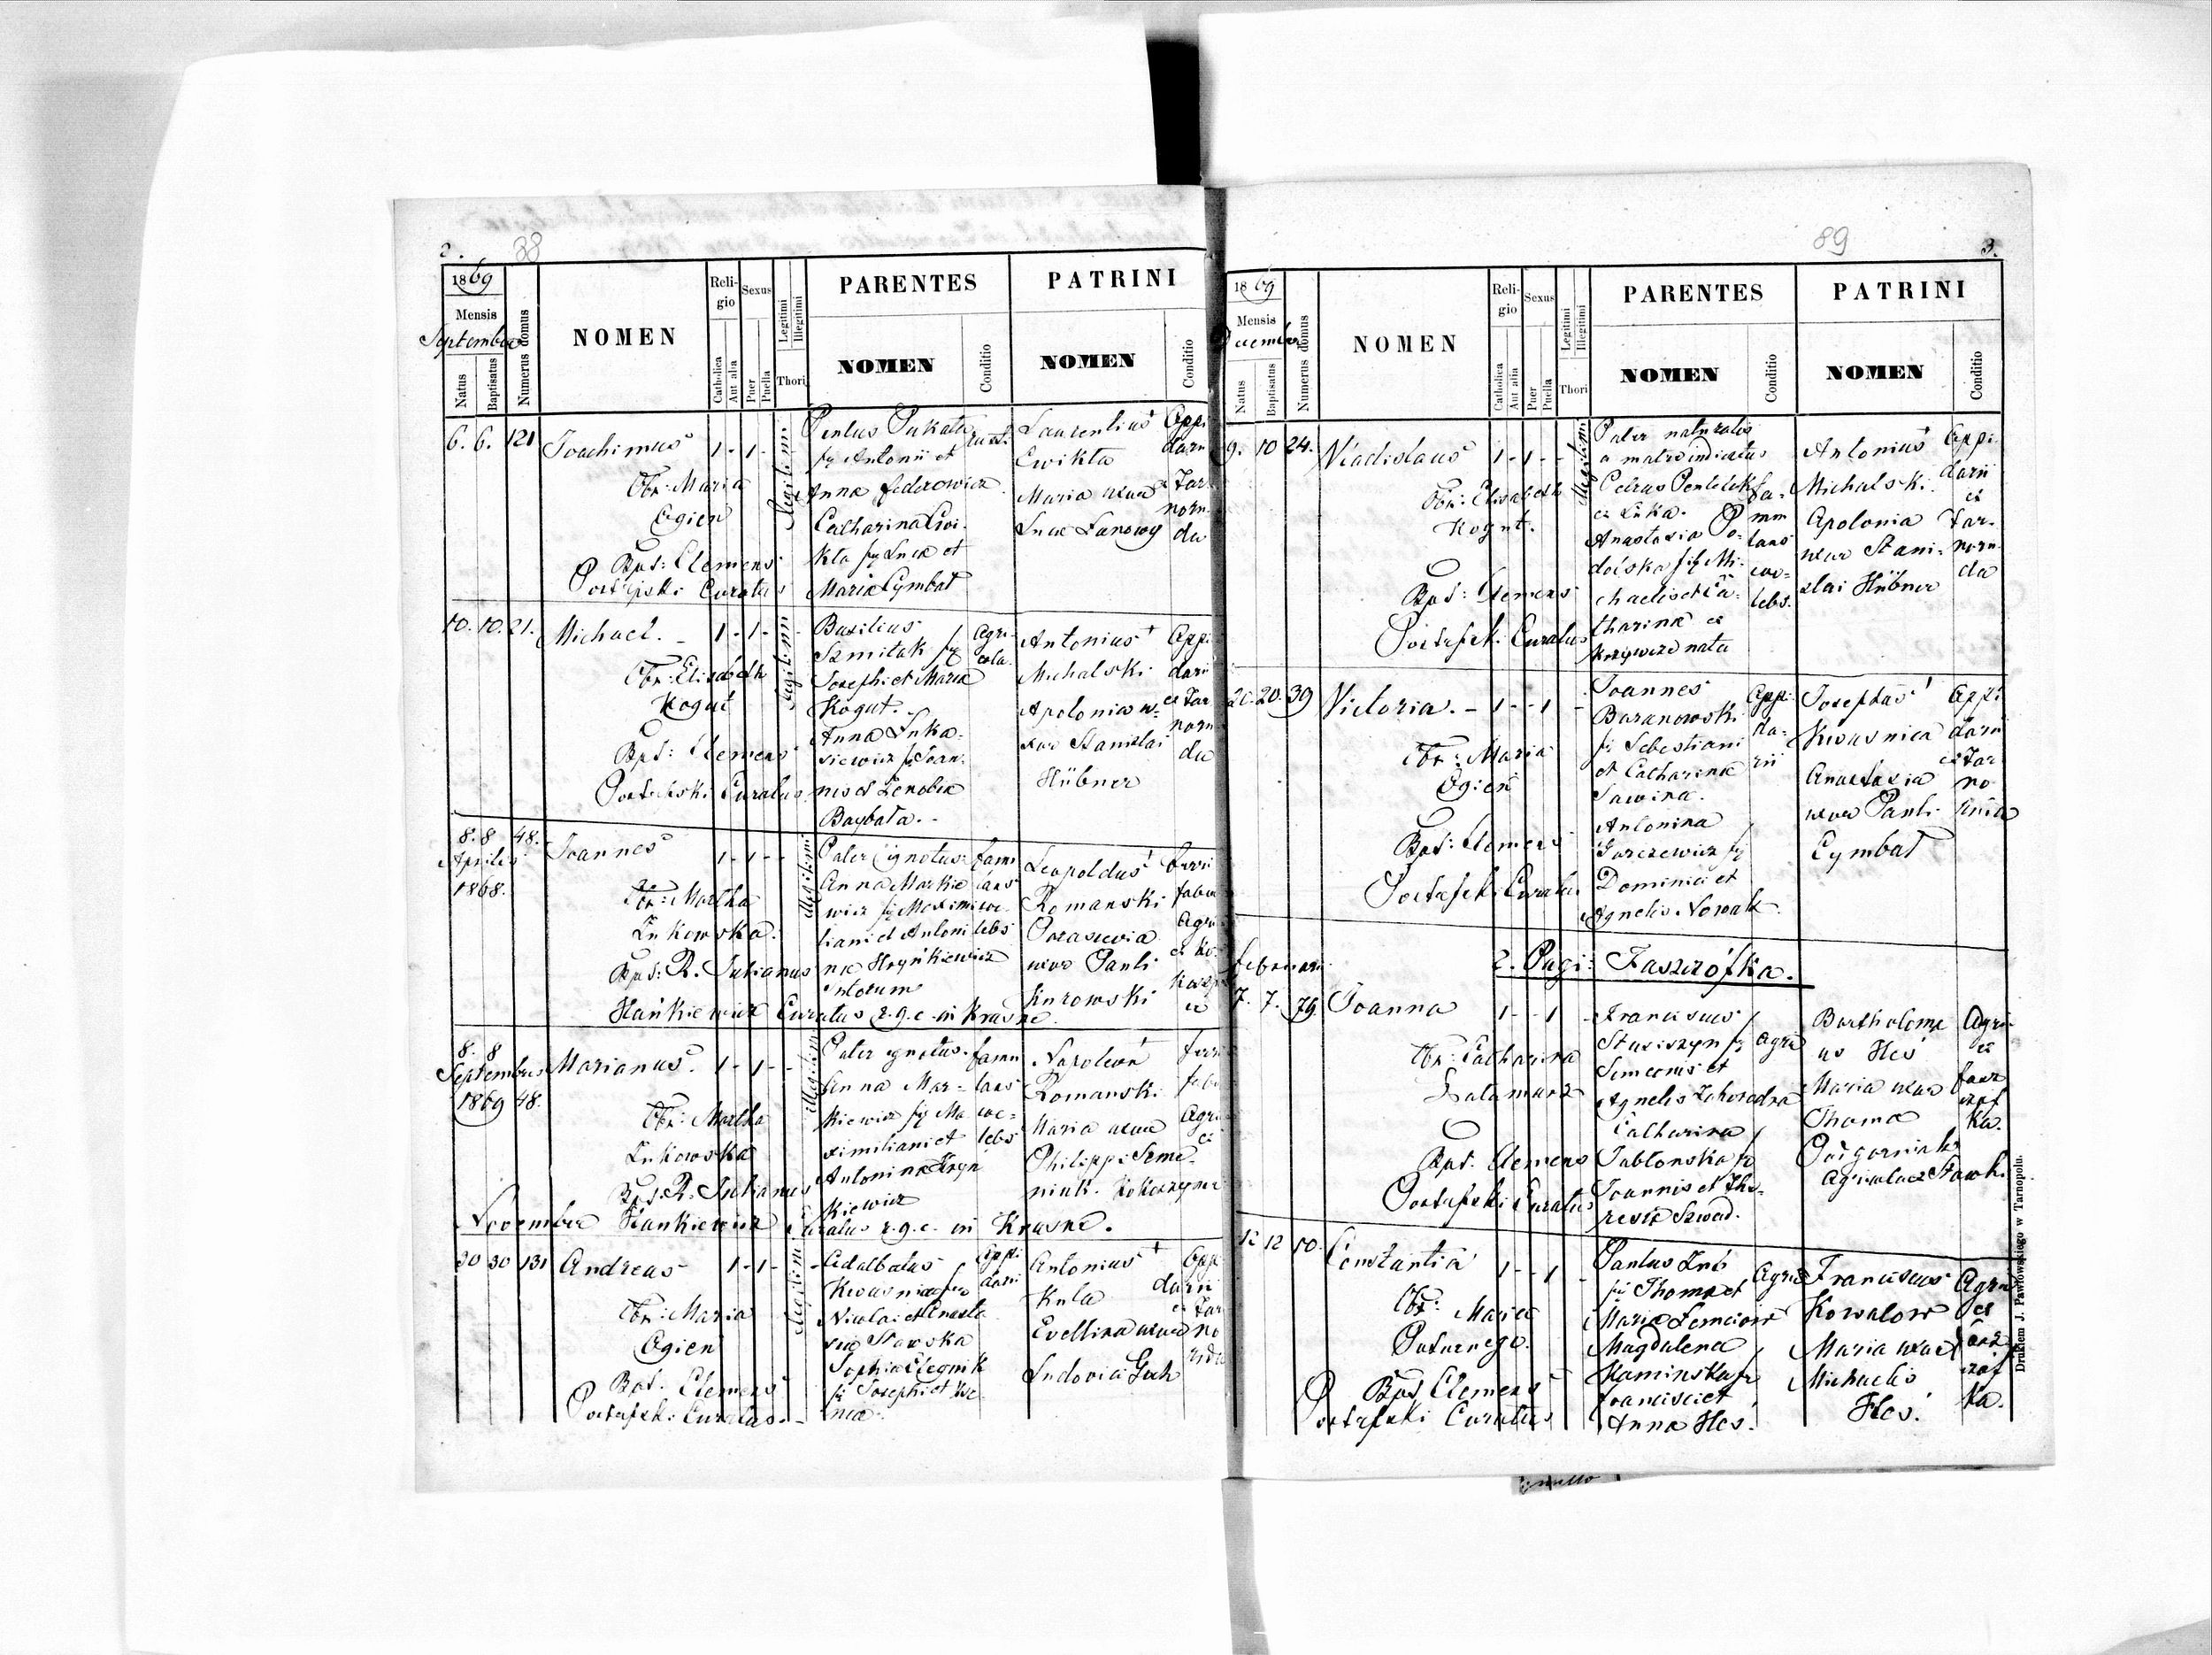 2. 88
1869
Mensis
September
Natus
Baptisatus
Numerus domus
NOMEN
Religio
Catholica
Aut alia
Sexus
Puer
Puella
Legitimi
Illegitimi
Thori
PARENTES
NOMEN
Conditio
PATRINI
NOMEN
Conditio
6. 6. 121 Joachimus 1 - 1 -
Obr: Maria
Ogien
Bpt: Clemens
Curatus
Legitimi
fil Antonii et
Anna Federowicz
Catharina Cwi-
kta fil Luca et
Maria Cymbał
rust.
Laurentius
Cwikta
Maria uxor
Luca Łanowy
Oppi
darii
Tar
noru
da
10. 10. 21. Michael. - 1 - 1 -
Obr: Elisabeth
Kogut
Bpt: Clemens
Curatus
Legitimi
Basilius
Szmilak fil
Josephi et Maria
Kogut.
Anna Luka-
siewicz fil Joan-
nis et Zenobia
Baybała.
Agri-
cola
Antonius
Michalski
Apolonia u-
xor Stanislai
Hübner
Oppi
darii
ex Tar
noru
da
8. 8 48.
Aprilis
1868.
Joannes 1 - 1 -
Obr: Martha
Żukowska.
Bpt: R. Julianus
Hankiewicz Curatus r.g.c. in Krasne
illegitimi
Pater ignotus
Anna Markie
wicz fil Maximi
liani et Antoni
na Hryńkiewicz
fam
lans
coe
lebs
Leopoldus
Romanski
uxor Pauli
Kurowski
ferri
faber
Agri
8. 8
Septembris
1869 48.
Marianus. 1 - 1 -
Obr: Martha
Żukowska
Bpt: R. Julianus
Hankiewicz Curatus r.g.c. in Krasne.
illegitimi
Pater ignotus
Anna Mar-
kiewicz fil Ma
ximiliani et
Antonina Hryn
kiewicz
famu
lans
coe-
lebs
Napoleon
Romanski
Maria uxor
Philippi Seme-
niuk.
ferri
fabe
Agri
ex
November
30 30 131 Andreas 1 - 1 -
Obr: Maria
Ogien
Bpt. Clemens
Curatus.
Legitimi
Adalbertus
Nicolai et Anasta
sia Stawska
Sophia Olegnik
fil Josephi et
Oppi
dari
Antonius
Kula
Evellina uxor
Ludovici Guh
Oppi
darii
ex Tar
no
ruda
89 3.
1869
Mensis
December
Natus
Baptisatus
Numerus domus
NOMEN
Religio
Catholica
Aut alia
Sexus
Puer
Puella
Legitimi
Illegitimi
Thori
PARENTES
NOMEN
Conditio
PATRINI
NOMEN
Conditio
9. 10 24. Vladislaus 1 - 1 -
Obr: Elisabeth
Kogut.
Bpt: Clemens
Curatus
illegitimi
Pater naturalis
a matre indicatus
Petrus Pentelek
Anastasia Po-
dolska fil Mi-
chaelis et Ca-
tharina
nata
fa-
mu
lans
coe-
lebs.
Antonius
Michalski.
Apolonia
uxor Stani-
slai Hübner
Oppi-
darii
ex
Tar-
noru
da
20. 20. 39 Victoria. - 1 - - 1 -
Obr: Maria
Ogien
Bpt: Clemens
Curatus
Joannes
Baranowski
fil Sebestiani
et Catharina
Sawina.
Antonina
Gurzewicz fil
Dominici et
Agnetis Nowak.
Oppi-
da-
rii
Josephus
Kwasnica
Anastasia
uxor Pauli
Cymbał
Oppi
darii
ex Tar
no
ruda
2. Pagi: Faszczófka.
Februari
7. 7. 79 Joanna 1 - - 1 -
Obr: Catharina
Bpt. Clemens
Curatus
Franciscus
Simeonis et
Agnetis
Catharina
Jabłonska fil
Joannis et The-
resia Szwed.
Agri
Bartholome
us Hes
Maria uxor
Thoma
Podgorniak
Agri
ex
Fasz
czof
ka.
12 12 50. Constantia 1 - - 1 -
Obr: Maria
Bpt. Clemens
Curatus
fil Thoma et
Magdalena
Kaminska fil
Francisci et
Anna Hes.
Agri
Franciscus
Kowalow
Maria uxor
Michaelis
Hes.
Agri
ex
Fasz
czof
ka.
Drukiem J. Pawłowskiego w Tarnopolu.